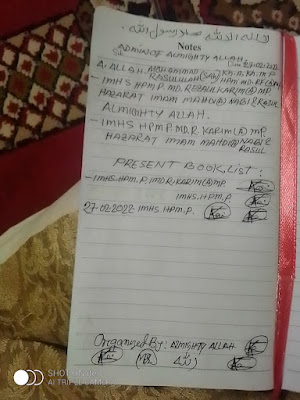 لا اله الا الله محمد رسول الله
Notes
ADMIN OF ALMIGHTY ALLAH
A. ALLAH, MOHAMMAD
RASULULLAH (SAW) HPM. MD. RK (A)
- IMHS HPM.P. MD. REZAUL KARIM (A) MP
HAZARAT IMAM MAHADI NABI & RASUL
ALMIGHTY ALLAH.
- IMHS HPM P. MD. R. KARIM (A) MP
HAZARAT IMAM MAHADI NABI &
RASUL
PRESENT BOOK, LIST:
- IMHS. HPM. P. MD. R. KARIM (A) MP
IMHS. HPM. P
27-02-2022 IMHS. HPM. P.
Organized By: ALMIGHTY ALLAH
الله
SHOT ON
AI TRIPLE CAMERA